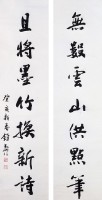 無數雲山供點筆
且將墨竹換新詩